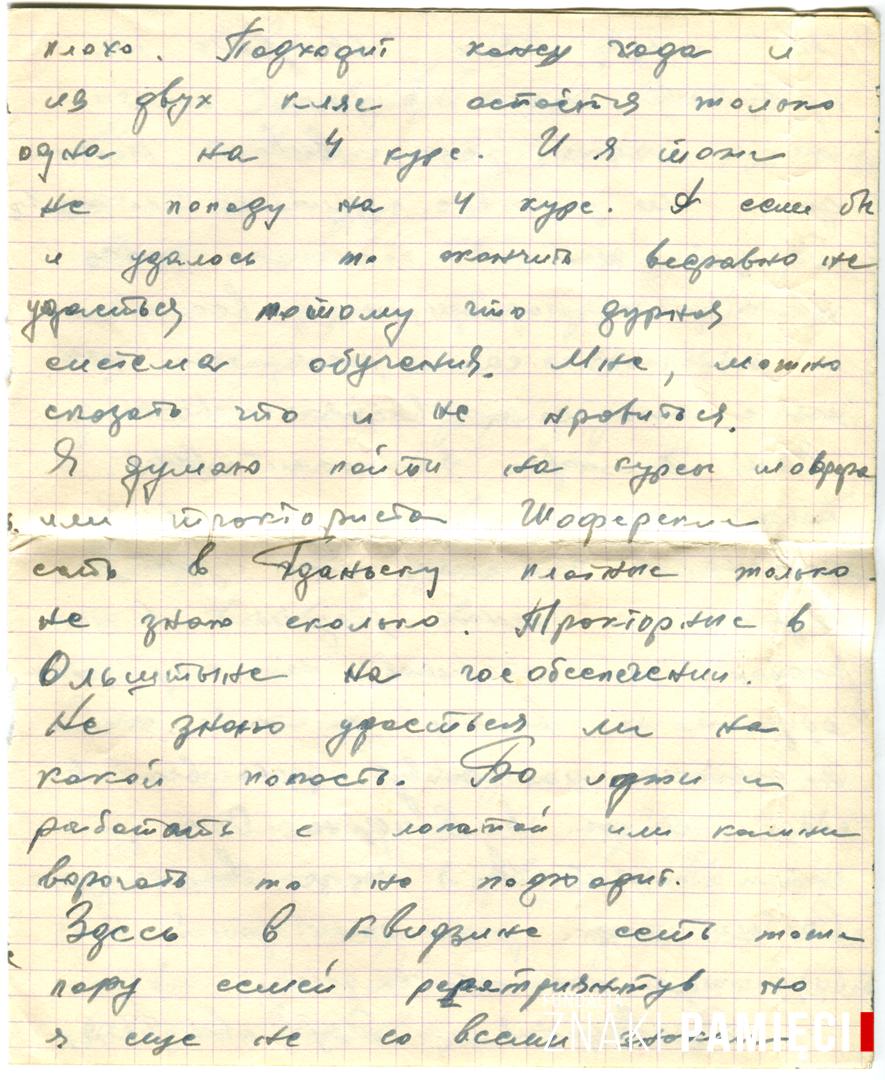 плохо. Подходит концу года и
из двух кляс остоётся только
одна на 4 курс. И я тоже
не попаду на 4 курс. А если бы
и удалось то окончить всёравно не
удасться потому что дурная
система обучения. Мне, можно
сказать что и не нровиться.
Я думаю пойти на курсы шофера
или тракториста Шоферские
есть в Гданьску платные только
не знаю сколько. Тракторные в
Ольштыне на гособеспечении.
Не знаю удасться ли на
какой попасть. Бо идти и
работать с лопатой или камни
ворочать то не подходит.
Здесь в Квидзине есть тоже
пару семей репятриянтув но
я еще не со всеми
ZNAKI PAMIĘCI